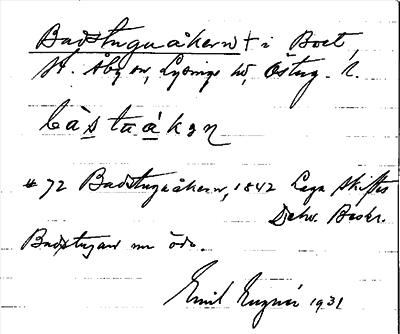 Badstuguåkern † i Boet,
St. Åby sn, Lysings hd, Östug. l.
bàstuákəṇ
# 72 Badstuguåkern, 1842 Laga Skiftes
Delw. Beskr.
Badstugan nu öde.
Emil 1931